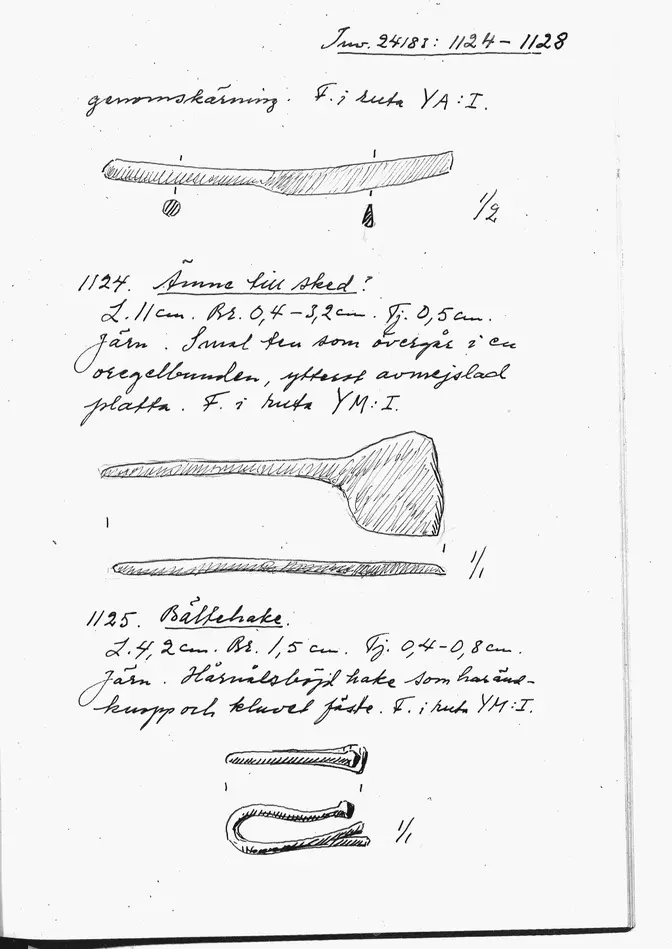 Inv. 24183: 1124-1128
genomskärning. F. i ruta YA:I.
1/2
1124. Ämne till sked?
L. 11 cm. Br. 0,4-3,2 cm. Tj. 0,5 cm.
Järn. Smal ten som övergår i en
oregelbunden, ytterst avmejslad
platta. F. i ruta YM:I.
1/1
1125. Bältehake.
L. 4,2 cm. Br. 1,5 cm. Tj. 0,4-0,8 cm.
Järn. Hårnålsböjd hake som har änd-
knopp och kluvet fäste. F. i ruta YM:I.
1/1